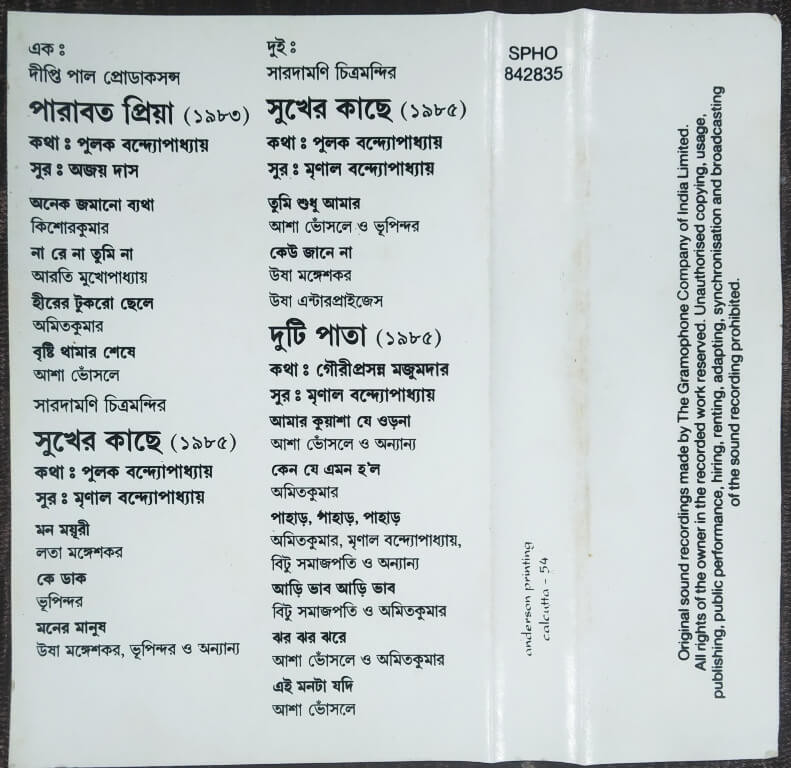 এক ঃ
দীপ্তি পাল প্রোডাকসন্স
পারাবত প্রিয়া (১৯৮৩)
কথা ঃ পুলক বন্দ্যোপাধ্যায়
সুর ঃ অজয় দাস
অনেক জমানো ব্যথা
কিশোরকুমার
না রে না তুমি না
আরতি মুখোপাধ্যায়
হীরের টুকরো ছেলে
অমিতকুমার
বৃষ্টি থামার শেষে
আশা ভোঁসলে
সারদামণি চিত্রমন্দির
সুখের কাছে (১৯৮৫)
কথা ঃ পুলক বন্দ্যোপাধ্যায়
সুর ঃ মৃণাল বন্দ্যোপাধ্যায়
মন ময়ূরী
লতা মঙ্গেশকর
কে ডাক
ভূপিন্দর
মনের মানুষ
উষা মঙ্গেশকর, ভূপিন্দর ও অন্যান্য
দুই ঃ
সারদামণি চিত্রমন্দির
সুখের কাছে (১৯৮৫)
কথা ঃ পুলক বন্দ্যোপাধ্যায়
সুর ঃ মৃণাল বন্দ্যোপাধ্যায়
তুমি শুধু আমার
আশা ভোঁসলে ও ভূপিন্দর
কেউ জানে না
উষা মঙ্গেশকর
উষা এন্টারপ্রাইজেস
দুটি পাতা (১৯৮৫)
কথা ঃ গৌরীপ্রসন্ন মজুমদার
সুর ঃ মৃণাল বন্দ্যোপাধ্যায়
আমার কুয়াশা যে ওড়না
আশা ভোঁসলে ও অন্যান্য
কেন যে এমন হ'ল
অমিতকুমার
পাহাড়, পাহাড়, পাহাড়
অমিতকুমার, মৃণাল বন্দ্যোপাধ্যায়,
বিটু সমাজপতি ও অন্যান্য
আড়ি ভাব আড়ি ভাব
বিটু সমাজপতি ও অমিতকুমার
ঝর ঝর ঝরে
আশা ভোঁসলে ও অমিতকুমার
এই মনটা যদি
আশা ভোঁসলে
SPHO
842835
anderson printing
calcutta - 54
Original sound recordings made by The Gramophone Company of India Limited.
All rights of the owner in the recorded work reserved. Unauthorised copying, usage,
publishing, public performance, hiring, renting, adapting, synchronisation and broadcasting
of the sound recording prohibited.